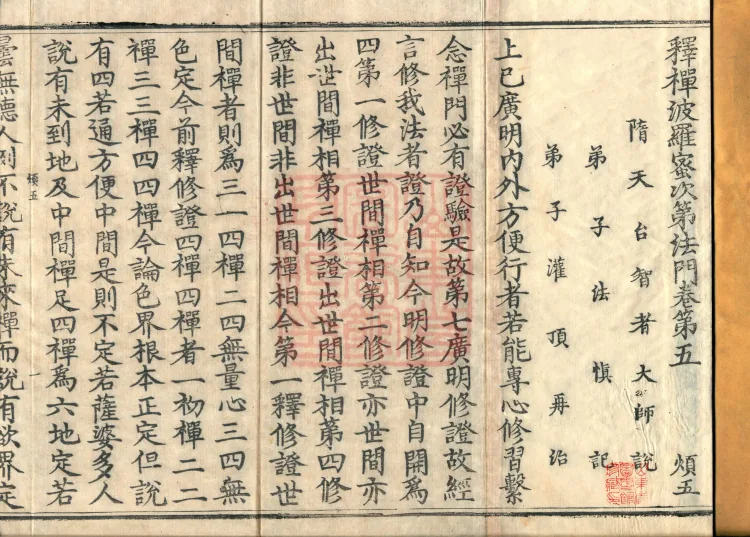 釋禪波羅蜜次第法門卷第五 煩五
隋天台智者大師說
弟子法慎記
弟子灌頂再治
上已廣明內外方便行者若能專心修習繫
念禪門必有證驗是故第七廣明修證故經
言修我法者證乃自知今明修證中自開為
四第一修證世間禪相第二修證亦世間亦
出世間禪相第三修證出世間禪相第四修
證非世間非出世間禪相今第一釋修證世
間禪者則為三一四禪二四無量心三四無
色定今前釋修證四禪四禪者一初禪二二
禪三三禪四四禪今論色界根本正定但說
有四若通方便中間是則不定若薩婆多人
說有未到地及中間禪足四禪為六地定若
煩五
曇無德人則不說有未來禪而說有欲界定